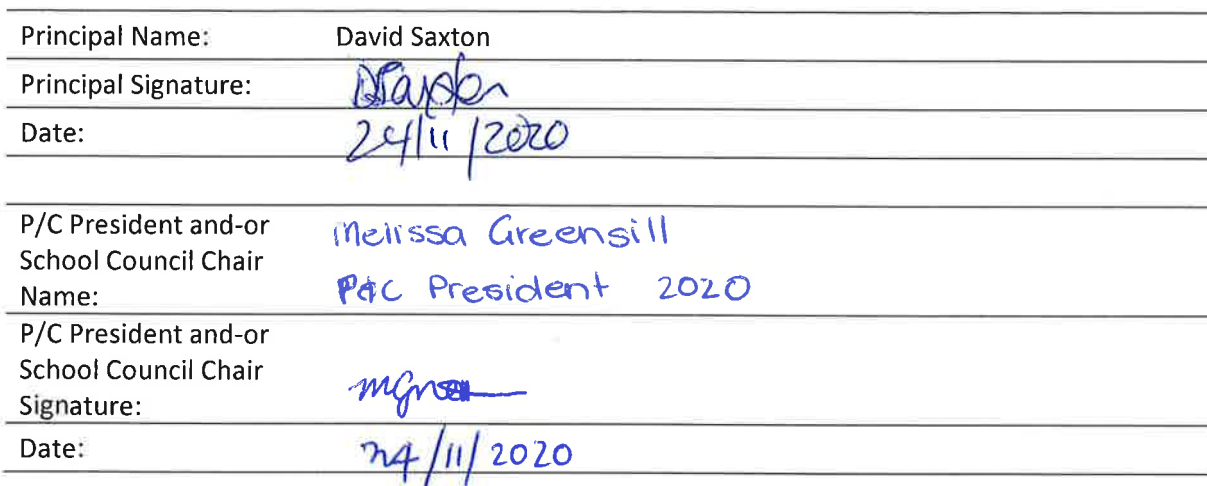 Principal Name: David Saxton
Principal Signature: DSaxton
Date: 24/11/2020
P/C President and-or
School Council Chair
Name:
Melissa Greensill
P&C President 2020
P/C President and-or
School Council Chair
Signature:
Date: 24/11/2020